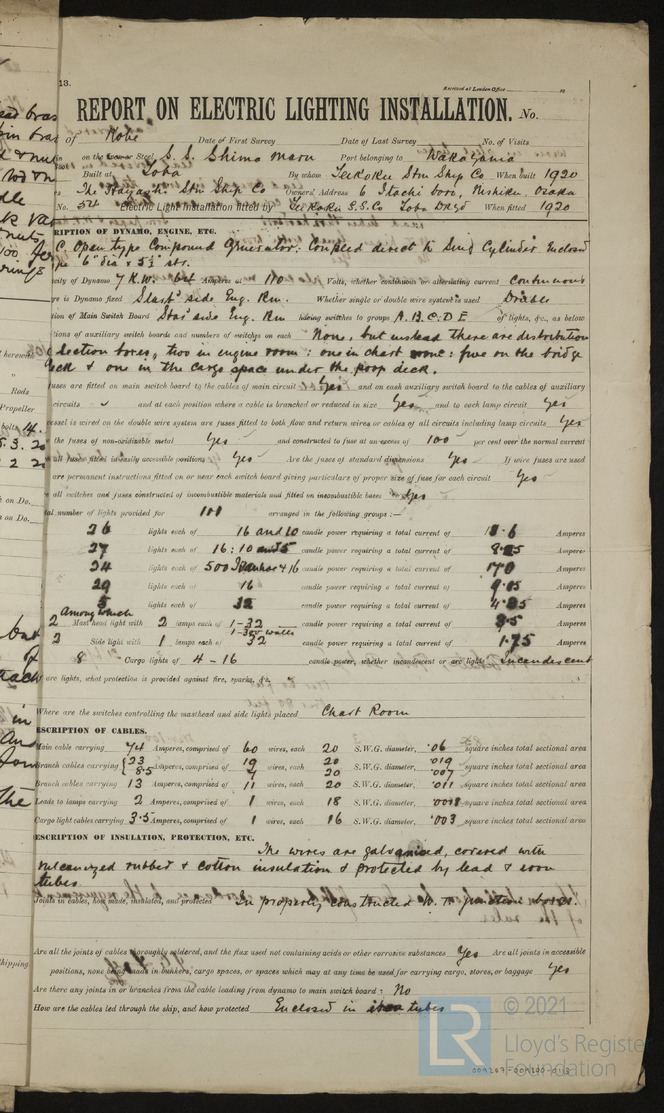 13.
Received at London Office
REPORT ON ELECTRIC LIGHTING INSTALLATION. No.
of Kobe Date of First Survey Date of Last Survey No. of Visits
on the Steel S.S. Shima Maru Port belonging to Wakayama
Built at Toba By whom Teikoku Stm Ship Co When built 1920
The Hayashi Stm Ship Co Owners' Address 6 Itachi bori, Nishiku, Osaka
No. 54 Electric Light Installation fitted by Teikoku S.S. Co Toba Dkyd When fitted 1920
RIPTION OF DYNAMO, ENGINE, ETC.
C. Open type Compound Generator. Coupled direct to Cylinder Enclosed
6" dia x 5½" str.
city of Dynamo 7 K.W. 64 Amperes at 110 Volts, whether continuous or alternating current Continuous
re is Dynamo fixed Starb'd side Eng. Rm. Whether single or double wire system is used Double
tion of Main Switch Board Star' side Eng. Rm having switches to groups A. B. C. D E of lights, &c., as below
tions of auxiliary switch boards and numbers of switches on each None, but instead there are distribution
& Section boxes, two in engine room: one in chart room: five on the bridge
deck & one in the cargo space under the poop deck.
uses are fitted on main switch board to the cables of main circuit Yes and on each auxiliary switch board to the cables of auxiliary
circuits and at each position where a cable is branched or reduced in size Yes and to each lamp circuit Yes
vessel is wired on the double wire system are fuses fitted to both flow and return wires or cables of all circuits including lamp circuits Yes
the fuses of non-oxidizable metal Yes and constructed to fuse at an excess of 100 per cent over the normal current
all fuses fitted in easily accessible positions Yes Are the fuses of standard dimensions Yes If wire fuses are used
are permanent instructions fitted on or near each switch board giving particulars of proper size of fuse for each circuit Yes
e all switches and fuses constructed of incombustible materials and fitted on incombustible bases Yes
tal number of lights provided for 111 arranged in the following groups :—
26 lights each of 16 and 10 candle power requiring a total current of Amperes
27 lights each of 16: 10 and 5 candle power requiring a total current of Amperes
24 lights each of candle power requiring a total current of Amperes
29 lights each of 16 candle power requiring a total current of Amperes
5 lights each of 32 candle power requiring a total current of Amperes
Among which
2 Mast head light with 2 lamps each of 1-32 candle power requiring a total current of 3.5 Amperes
2 Side light with 1 lamps each of 32 candle power requiring a total current of 1.75 Amperes
8 Cargo lights of 4 - 16 candle power, whether incandescent or arc lights Incandescent
arc lights, what protection is provided against fire, sparks, &c.
Where are the switches controlling the masthead and side lights placed Chart Room
ESCRIPTION OF CABLES.
Main cable carrying 74 Amperes, comprised of 60 wires, each 20 S.W.G. diameter, .06 square inches total sectional area
Branch cables carrying 23 Amperes, comprised of 19 wires, each 20 S.W.G. diameter, .019 square inches total sectional area
8.5 7 20 .007
Branch cables carrying 13 Amperes, comprised of 11 wires, each 20 S.W.G. diameter, .011 square inches total sectional area
Leads to lamps carrying 2 Amperes, comprised of 1 wires, each 18 S.W.G. diameter, .0018 square inches total sectional area
Cargo light cables carrying 3.5 Amperes, comprised of 1 wires, each 16 S.W.G. diameter, .003 square inches total sectional area
ESCRIPTION OF INSULATION, PROTECTION, ETC.
The wires are galvanised, covered with
vulcanized rubber & cotton insulation & protected by lead & iron
tubes.
Joints in cables, how made, insulated, and protected In properly constructed W. T. junction boxes.
Are all the joints of cables thoroughly soldered, and the flux used not containing acids or other corrosive substances Yes Are all joints in accessible
positions, none being made in bunkers, cargo spaces, or spaces which may at any time be used for carrying cargo, stores, or baggage Yes
Are there any joints in or branches from the cable leading from dynamo to main switch board : No
How are the cables led through the ship, and how protected Enclosed in iron tubes
© 2021
LR
Lloyd's Register
Foundation